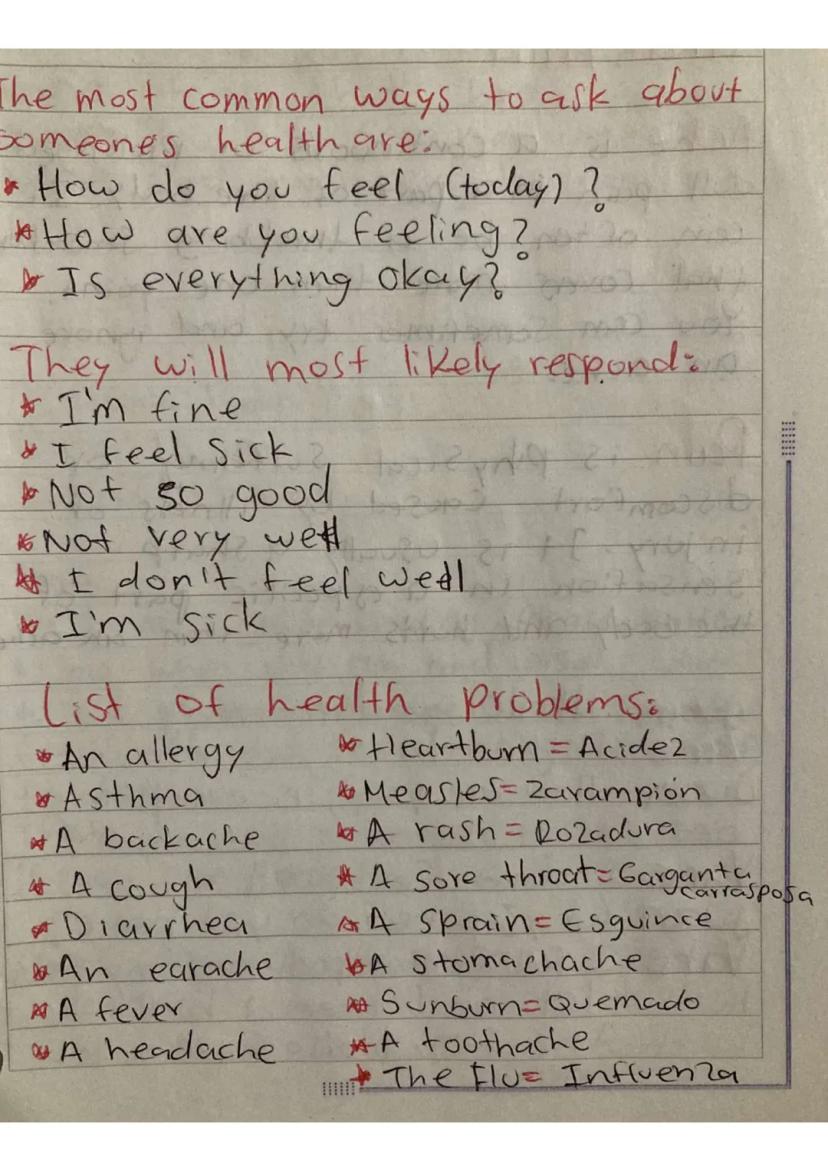 The most common ways to ask about
someone's health are:
* How do you feel (today)?
* How are you feeling?
* Is everything okay?
They will most likely respond:
* I'm fine
* I feel sick
* Not so good
* Not very well
* I don't feel well
* I'm sick
List of health problems:
* An allergy
* Asthma
* A backache
* A cough
* Diarrhea
* An earache
* A fever
* A headache
* Heartburn = Acidez
* Measles = Zarampión
* A rash = Rozadura
* A sore throat = Garganta
carrasposa
* A sprain = Esguince
* A stomachache
* Sunburn = Quemado
* A toothache
* The flu = Influenza